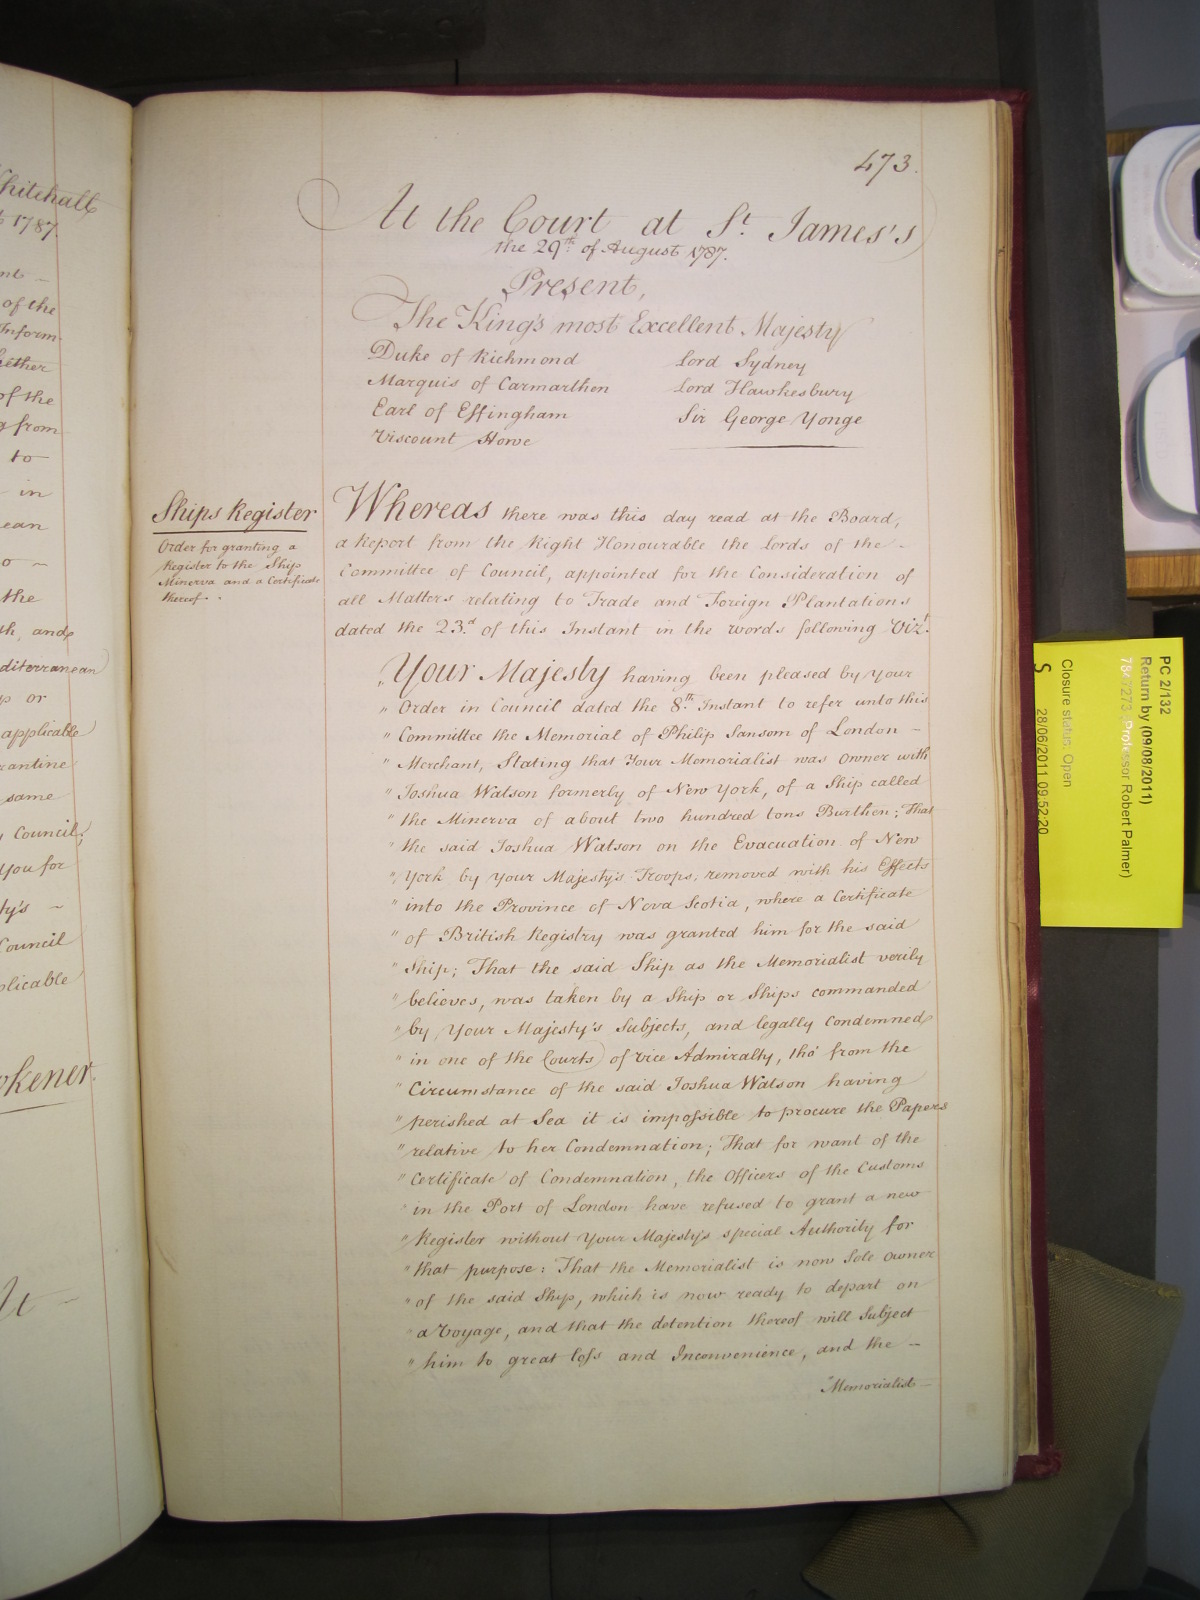 Whitehall
1787.
of the
Inform
hether
of the
from
to
in
ean
the
and
diterranean
or
applicable
rantine
same
Council;
You for
ty's ~
Council
plicable
okener.
473.
At the Court at St. James's
the 29th of August 1787.
Present,
The King's most Excellent Majesty
Duke of Richmond
Marquis of Carmarthen
Earl of Effingham
Viscount Howe
Lord Sydney
Lord Hawkesbury
Sir George Yonge
Ships Register
Order for granting a
Register to the Ship
Minerva and a Certificate
thereof.
Whereas there was this day read at the Board,
a Report from the Right Honourable the Lords of the -
Committee of Council, appointed for the Consideration of
all Matters relating to Trade and Foreign Plantations
dated the 23.d of this Instant in the words following Vizt.
" Your Majesty having been pleased by Your
" Order in Council dated the 8.th Instant to refer unto this
" Committee the Memorial of Philip Sansom of London -
" Merchant, Stating that Your Memorialist was Owner with
" Joshua Watson formerly of New York, of a Ship called
" the Minerva of about two hundred tons Burthen; That
" the said Joshua Watson on the Evacuation of New
" York by Your Majesty's Troops, removed with his Effects
" into the Province of Nova Scotia, where a Certificate
" of British Registry was granted him for the said
" Ship; That the said Ship as the Memorialist verily
" believes, was taken by a Ship or Ships commanded
" by Your Majesty's Subjects, and legally Condemned
" in one of the Courts of Vice Admiralty, tho' from the
" Circumstance of the said Joshua Watson having
" perished at Sea it is impossible to procure the Papers
" relative to her Condemnation; That for want of the
" Certificate of Condemnation, the Officers of the Customs
" in the Port of London have refused to grant a new
" Register without Your Majesty's special Authority for
" that purpose: That the Memorialist is now Sole Owner
" of the said Ship, which is now ready to depart on
" a Voyage, and that the detention thereof will Subject
" him to great loss and Inconvenience, and the -
"Memorialist-
PC 2/132
Return by (09/08/2011)
Professor Robert Palmer)
Closure status: Open
S 28/06/2011 09:52:20